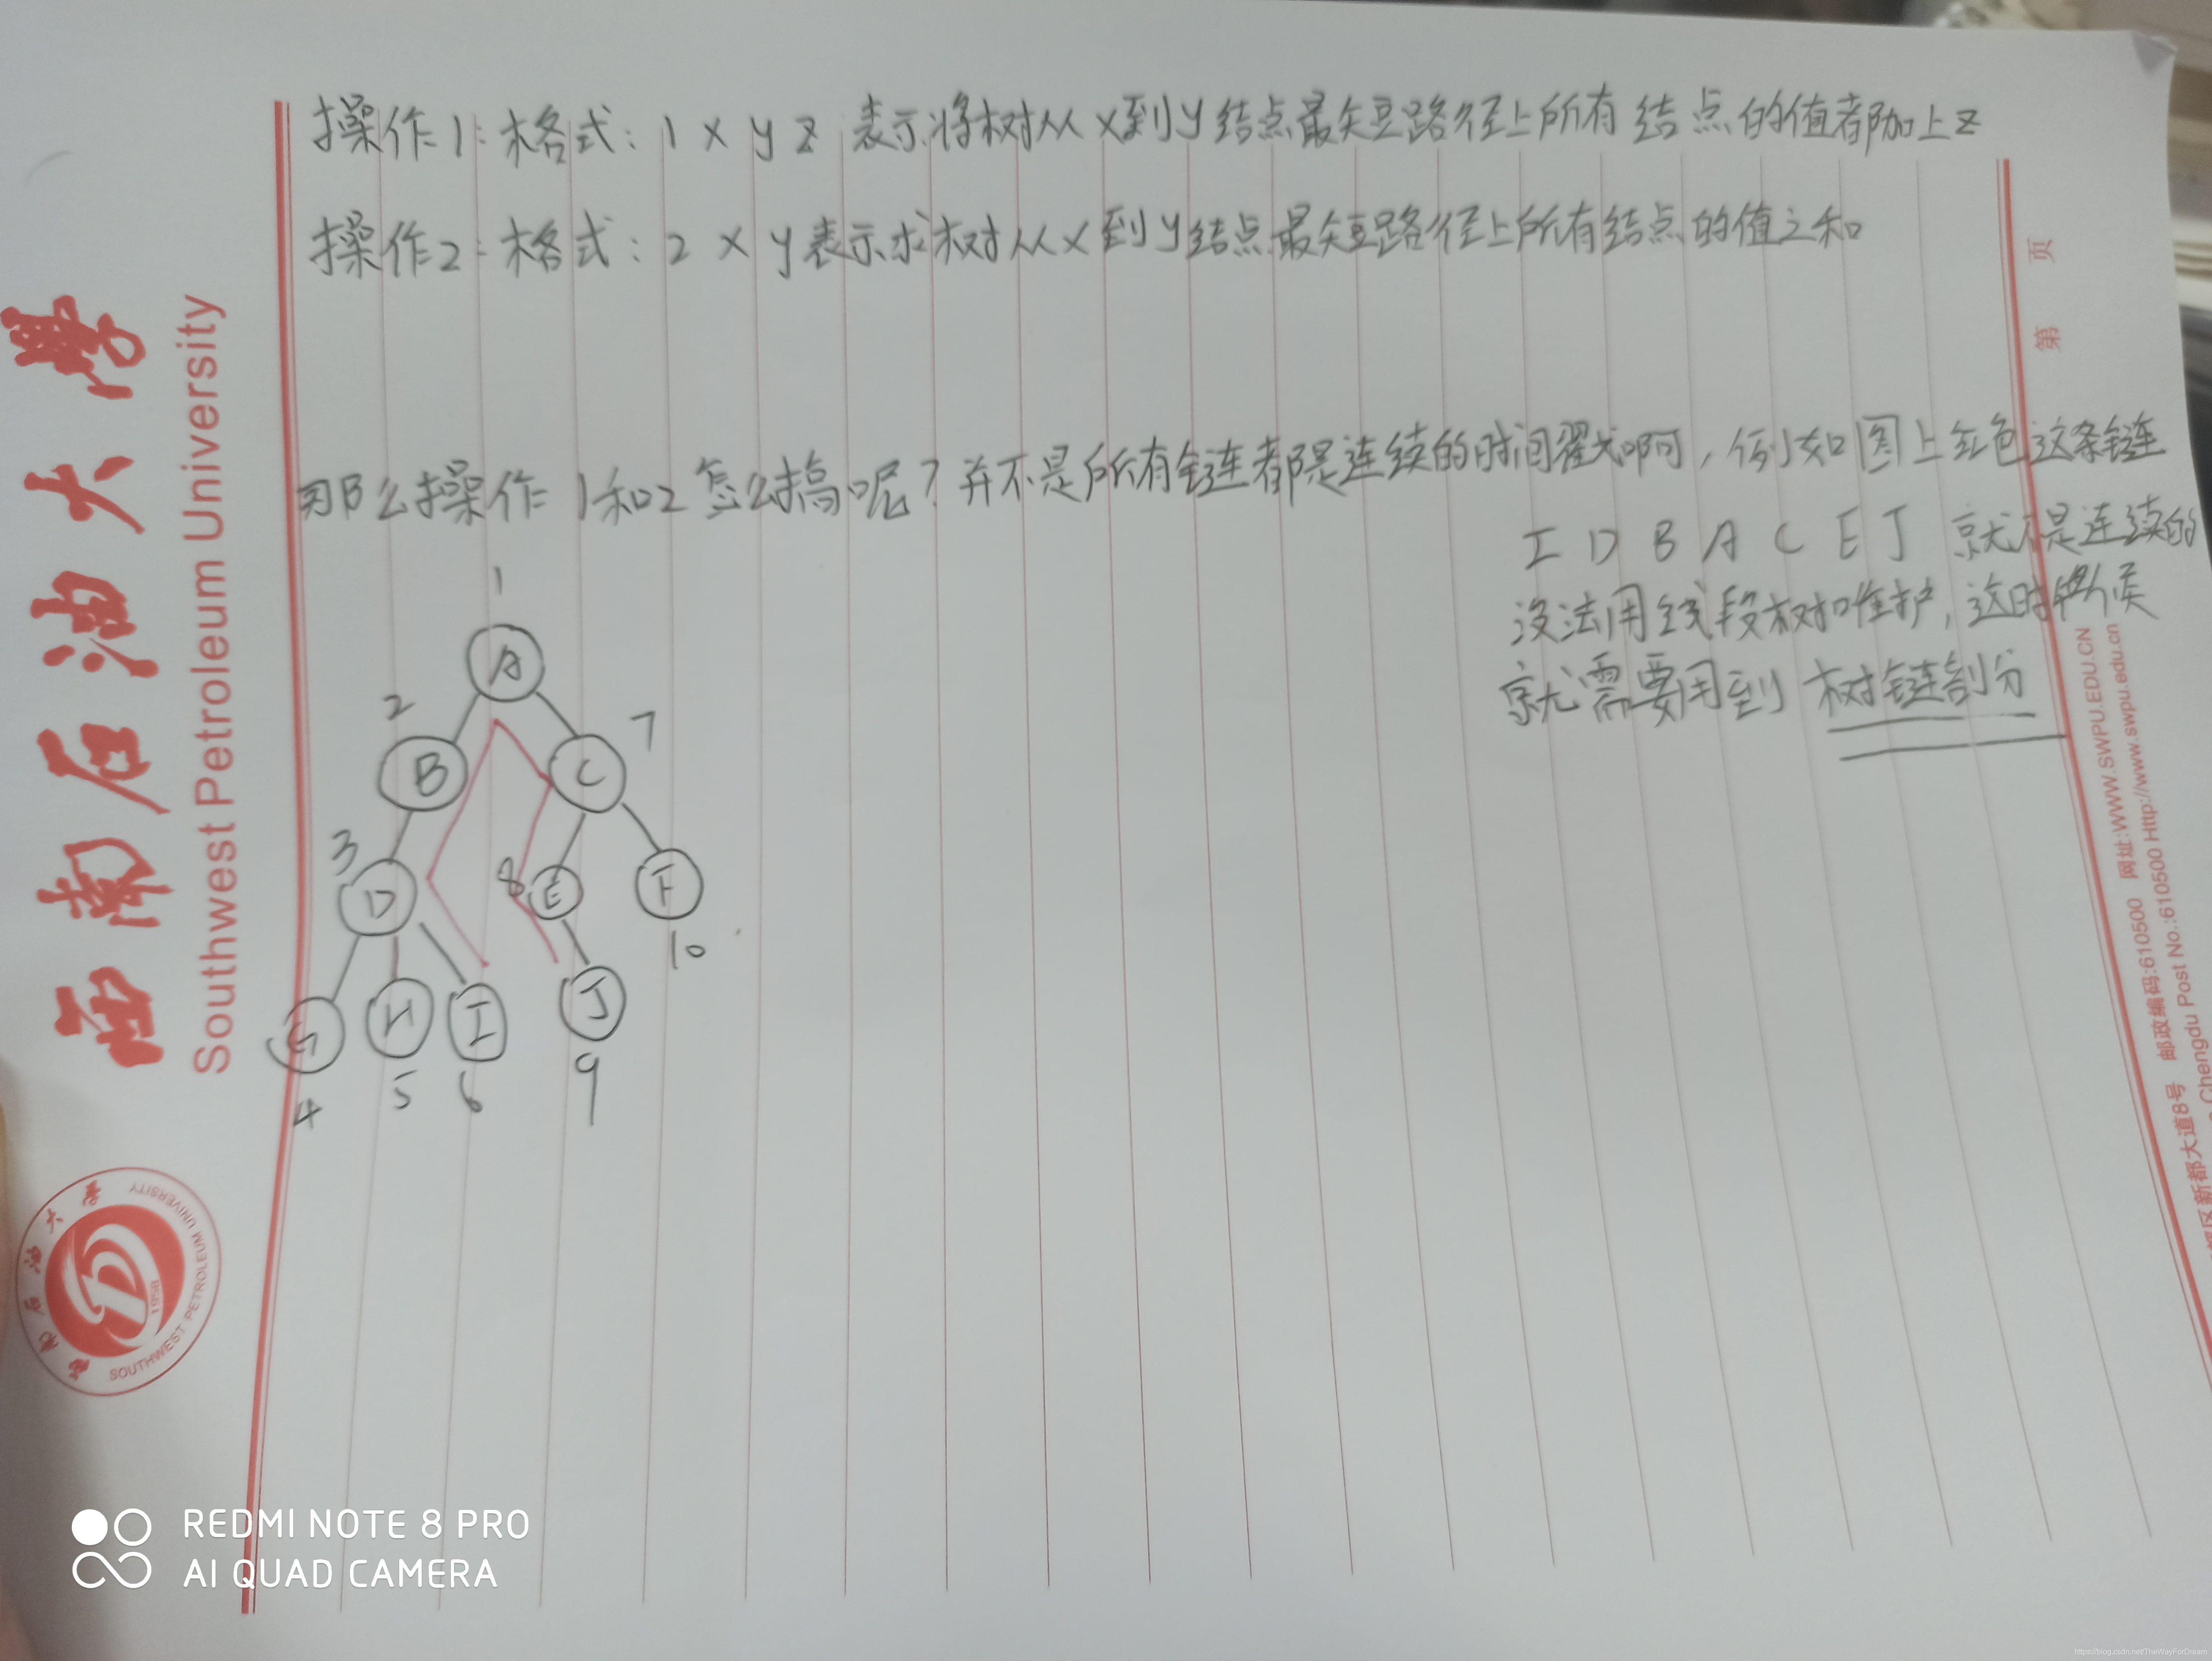 操作1: 格式: 1 x y z 表示将树从x到y结点最短路径上所有结点的值都加上z
操作2: 格式: 2 x y 表示求树从x到y结点最短路径上所有结点的值之和
那么操作1和2怎么搞呢? 并不是所有链都是连续的时间戳啊, 例如图上红色这条链
I D B A C E J 就不是连续的
没法用线段树维护, 这时候
就需要用到 树链剖分
1
A
2
B
C
7
3
D
8
E
F
10
G
H
I
J
4
5
6
9
西南石油大学
Southwest Petroleum University
西南石油大学
SOUTHWEST PETROLEUM UNIVERSITY
1958
第 页
网址:WWW.SWPU.EDU.CN
邮政编码:610500
新都大道8号
Chengdu Post No.:610500 Http://www.swpu.edu.cn
REDMI NOTE 8 PRO
AI QUAD CAMERA
https://blog.csdn.net/TheWayForDream